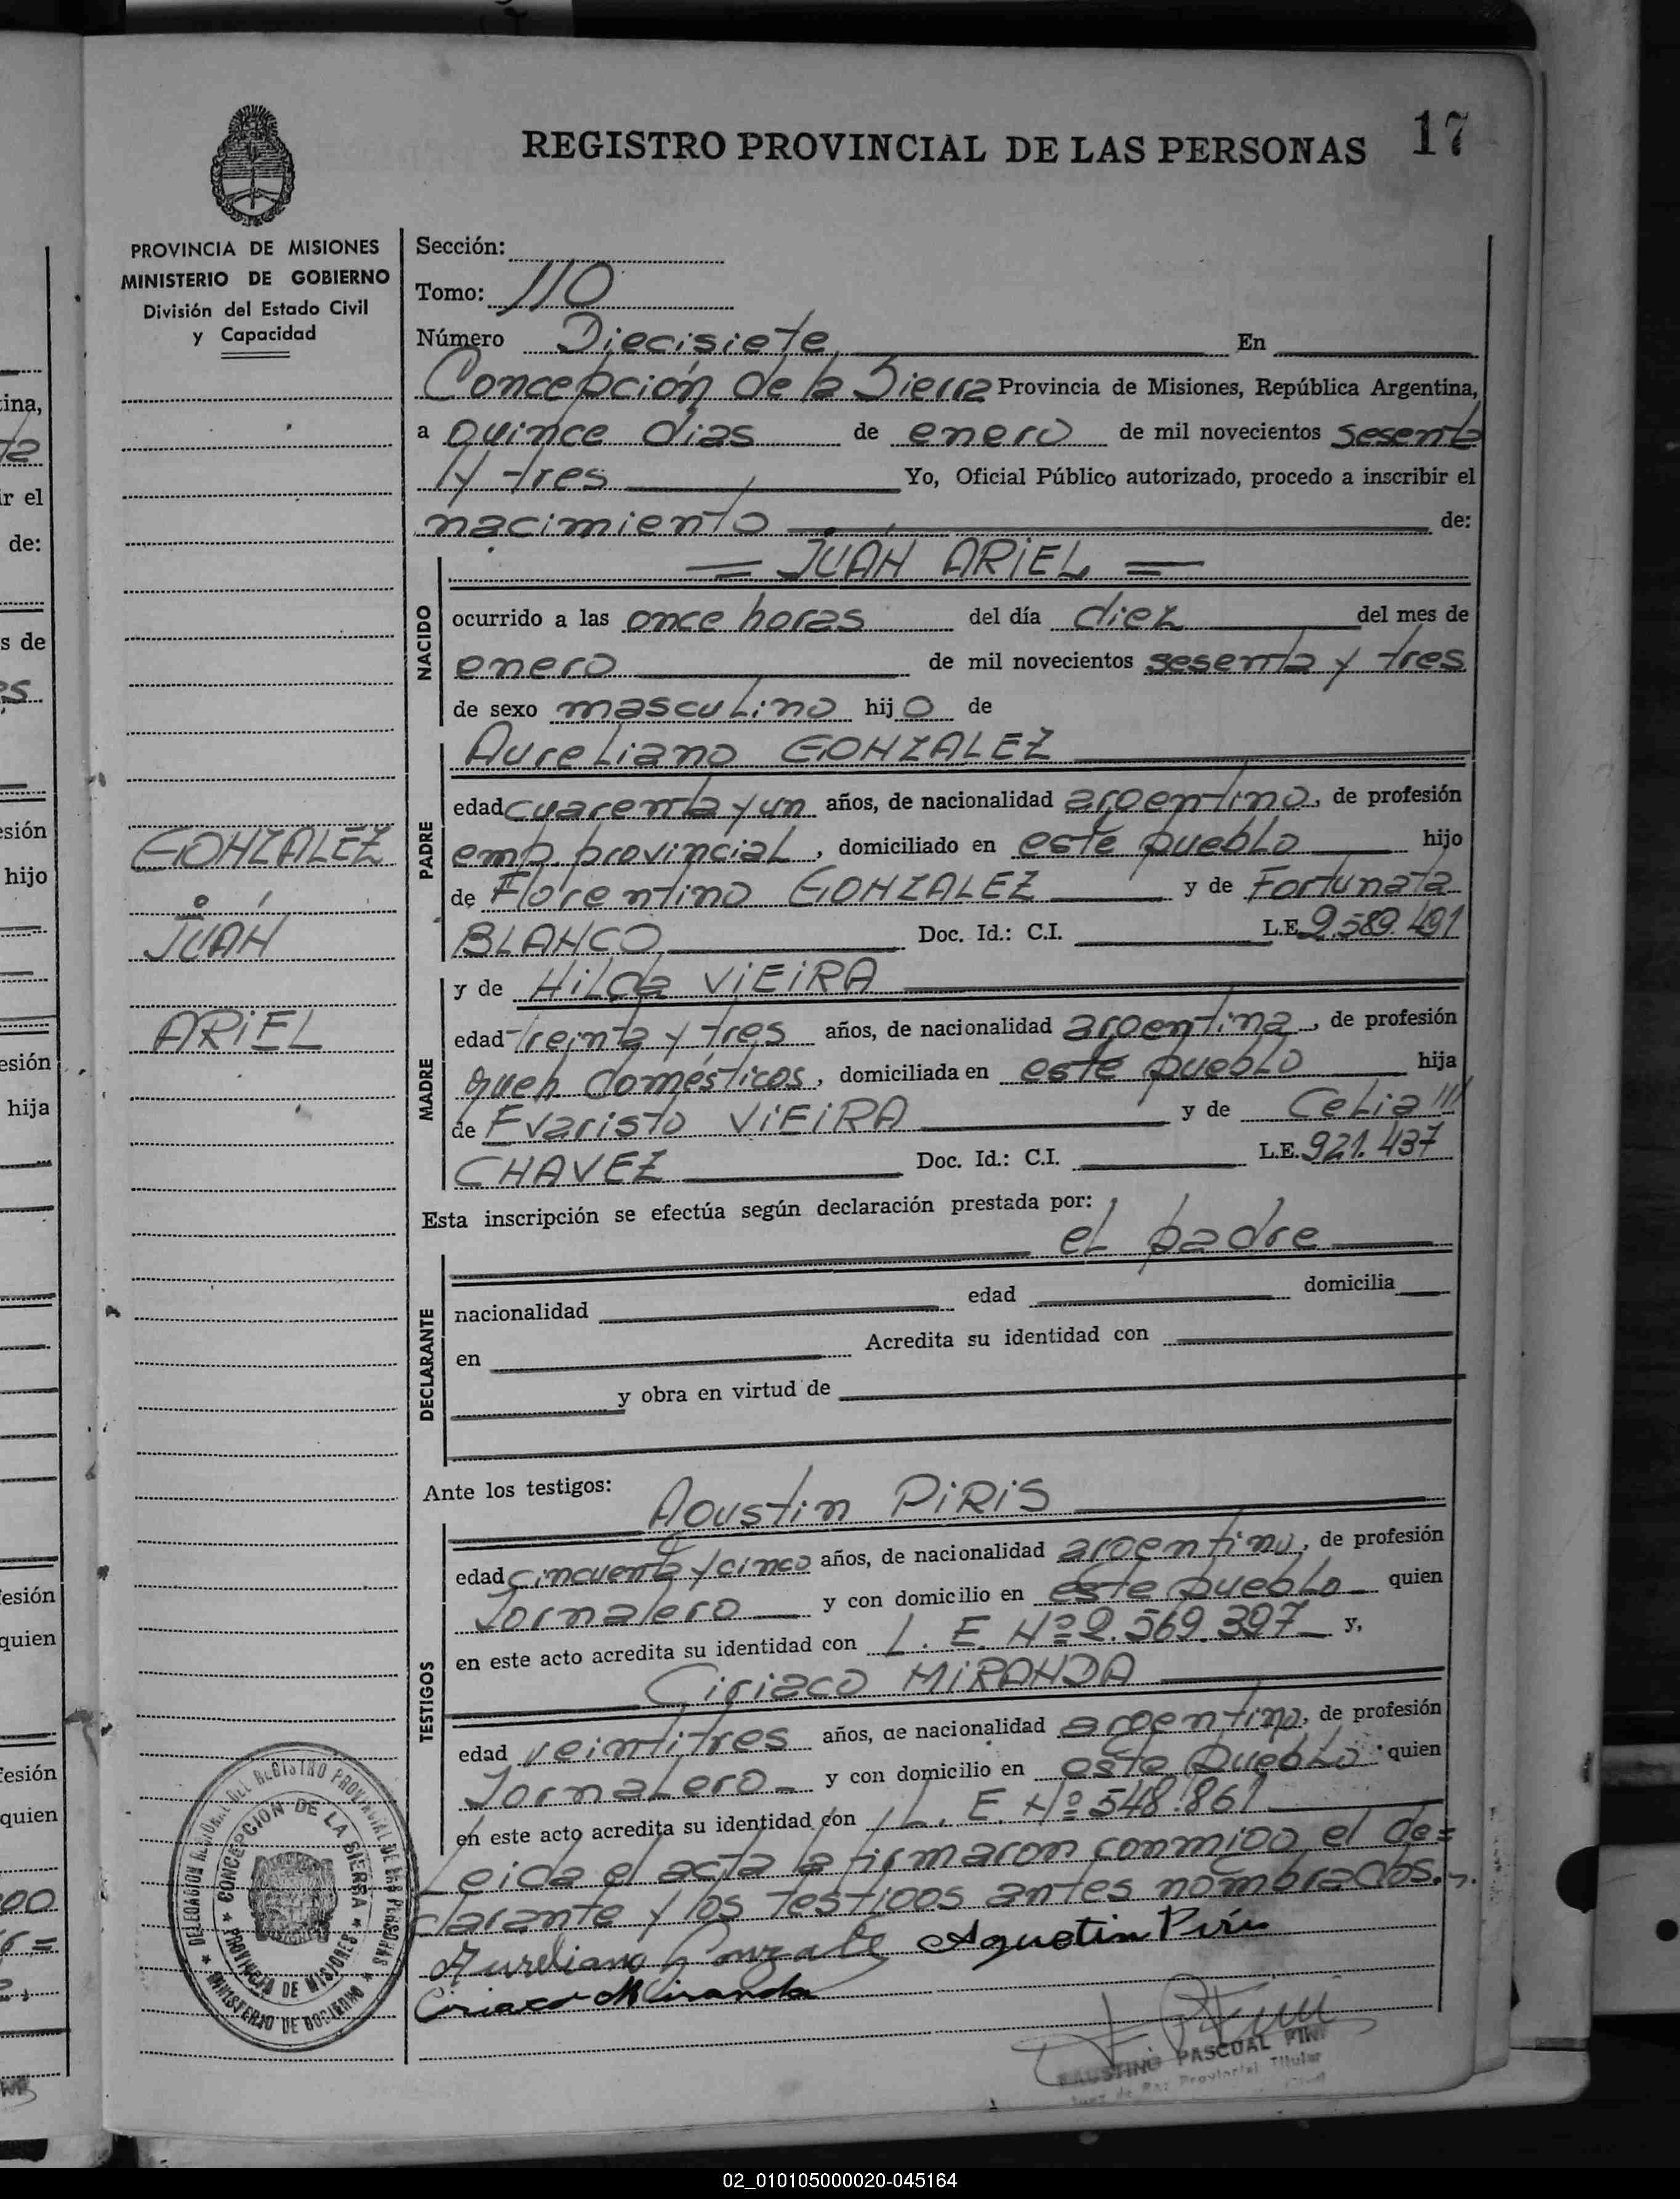 REGISTRO PROVINCIAL DE LAS PERSONAS 17
PROVINCIA DE MISIONES
MINISTERIO DE GOBIERNO
División del Estado Civil
y Capacidad
GONZALEZ
JUAN
ARIEL
Sección:
Tomo: 110
Número Diecisiete En
Concepción de la Sierra Provincia de Misiones, República Argentina,
a quince dias de enero de mil novecientos sesenta
y tres Yo, Oficial Público autorizado, procedo a inscribir el
nacimiento de:
= JUAN ARIEL =
NACIDO
ocurrido a las once horas del día diez del mes de
enero de mil novecientos sesenta y tres
de sexo masculino hijo de
PADRE
Aureliano GONZALEZ
edad cuarenta y un años, de nacionalidad argentino, de profesión
emp. provincial, domiciliado en este pueblo hijo
de Florentino GONZALEZ y de Fortunata
BLANCO Doc. Id.: C.I. L.E. 2.589.491
MADRE
y de Hilda VIEIRA
edad treinta y tres años, de nacionalidad argentina, de profesión
queh domésticos, domiciliada en este pueblo hija
de Evaristo VIEIRA y de Celia
CHAVEZ Doc. Id.: C.I. L.E. 921.437
Esta inscripción se efectúa según declaración prestada por:
el padre
DECLARANTE
nacionalidad edad domicilia
en Acredita su identidad con
y obra en virtud de
Ante los testigos:
TESTIGOS
Agustin PIRIS
edad cincuenta y cinco años, de nacionalidad argentino, de profesión
Jornalero y con domicilio en este pueblo quien
en este acto acredita su identidad con L. E. Nº 2.569.397 y,
Ciriaco MIRANDA
edad veintitres años, de nacionalidad argentino, de profesión
Jornalero y con domicilio en este pueblo quien
en este acto acredita su identidad con L. E. Nº 548.861
Leida el acta la firmaron conmigo el de=
clarante y los testigos antes nombrados.
Aureliano Gonzalez Agustin Piris
Ciriaco Miranda
DELEGACION REGIONAL DEL REGISTRO PROVINCIAL DE LAS PERSONAS
MINISTERIO DE GOBIERNO
CONCEPCION DE LA SIERRA
PROVINCIA DE MISIONES
FAUSTINO PASCUAL
Juez de Paz Provincial Titular
02_010105000020-045164